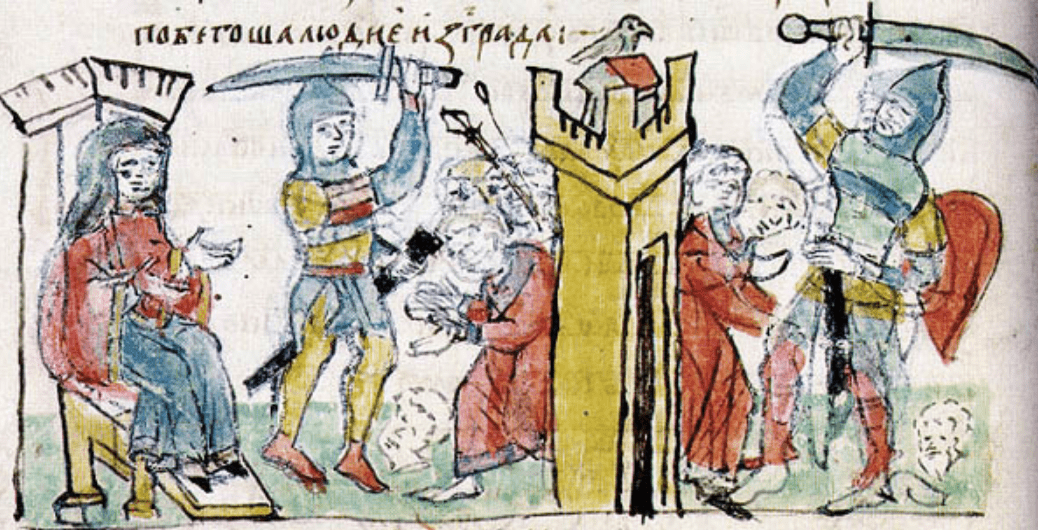 побегоша людиє из града :~